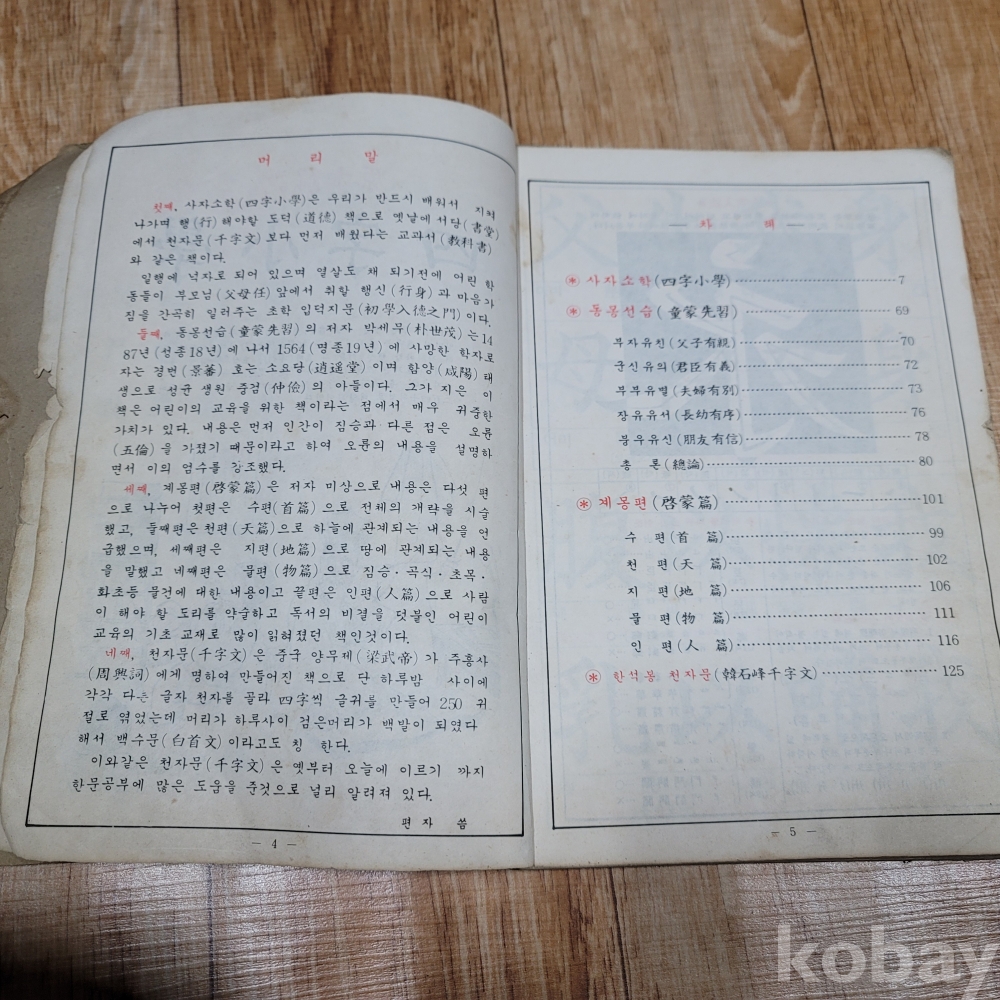 머 리 말
첫째, 사자소학(四字小學)은 우리가 반드시 배워서 지켜
나가며 행(行)해야할 도덕(道德) 책으로 옛날에 서당(書堂)
에서 천자문(千字文)보다 먼저 배웠다는 교과서(敎科書)
와 같은 책이다.
일행에 넉자로 되어 있으며 열살도 채 되기전에 어린 학
동들이 부모님(父母任)앞에서 취할 행신(行身)과 마음가
짐을 간곡히 일러주는 초학 입덕지문(初學入德之門)이다.
둘째, 동몽선습(童蒙先習)의 저자 박세무(朴世茂)는14
87년(성종18년)에 나서 1564(명종19년)에 사망한 학자로
자는 경번(景蕃) 호는 소요당(逍遥堂)이며 함양(咸陽)태
생으로 성균 생원 중검(仲儉)의 아들이다. 그가 지은 이
책은 어린이의 교육을 위한 책이라는 점에서 매우 귀중한
가치가 있다. 내용은 먼저 인간이 짐승과 다른 점은 오륜
(五倫)을 가졌기 때문이라고 하여 오륜의 내용을 설명하
면서 이의 엄수를 강조했다.
세째, 계몽편(啓蒙篇)은 저자 미상으로 내용은 다섯 편
으로 나누어 첫편은 수편(首篇)으로 전체의 개략을 시술
했고, 둘째편은천편(天篇)으로 하늘에 관계되는 내용을 언
급했으며, 세째편은 지편(地篇)으로 땅에 관계되는 내용
을 말했고 네째편은 물편(物篇)으로 짐승·곡식·초목·
화초등 물건에 대한 내용이고 끝편은 인편(人篇)으로 사람
이 해야 할 도리를 약술하고 독서의 비결을 덧붙인 어린이
교육의 기초 교재로 많이 읽혀졌던 책인것이다.
네째, 천자문(千字文)은 중국 양무제(梁武帝)가 주흥사
(周興詞)에게 명하여 만들어진 책으로 단 하루밤 사이에
각각 다른 글자 천자를 골라 四字씩 글귀를 만들어 250 귀
절로 엮었는데 머리가 하루사이 검은머리가 백발이 되였다
해서 백수문(白首文)이라고도 칭 한다.
이와같은 천자문(千字文)은 옛부터 오늘에 이르기 까지
한문공부에 많은 도움을 준것으로 널리 알려져 있다.
편 자 씀
— 4 —
— 차 례 —
사자소학(四字小學) 7
동몽선습(童蒙先習) 69
부자유친(父子有親) 70
군신유의(君臣有義) 72
부부유별(夫婦有別) 73
장유유서(長幼有序) 76
붕우유신(朋友有信) 78
총 론(總論) 80
계몽편(啓蒙篇) 101
수 편(首 篇) 99
천 편(天 篇) 102
지 편(地 篇) 106
물 편(物 篇) 111
인 편(人 篇) 116
한석봉 천자문(韓石峰千字文) 125
— 5 —
kobay